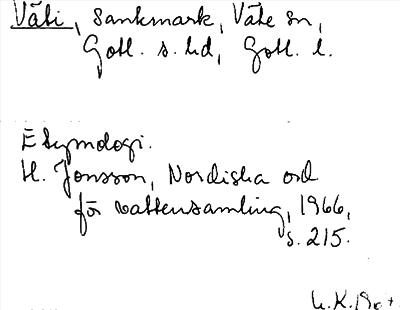 Väti, sankmark, Väte sn,
Gotl. s. hd, Gotl. l.
Etymologi.
H. Jonsson, Nordiska ord
för vattensamling, 1966,
s. 215.